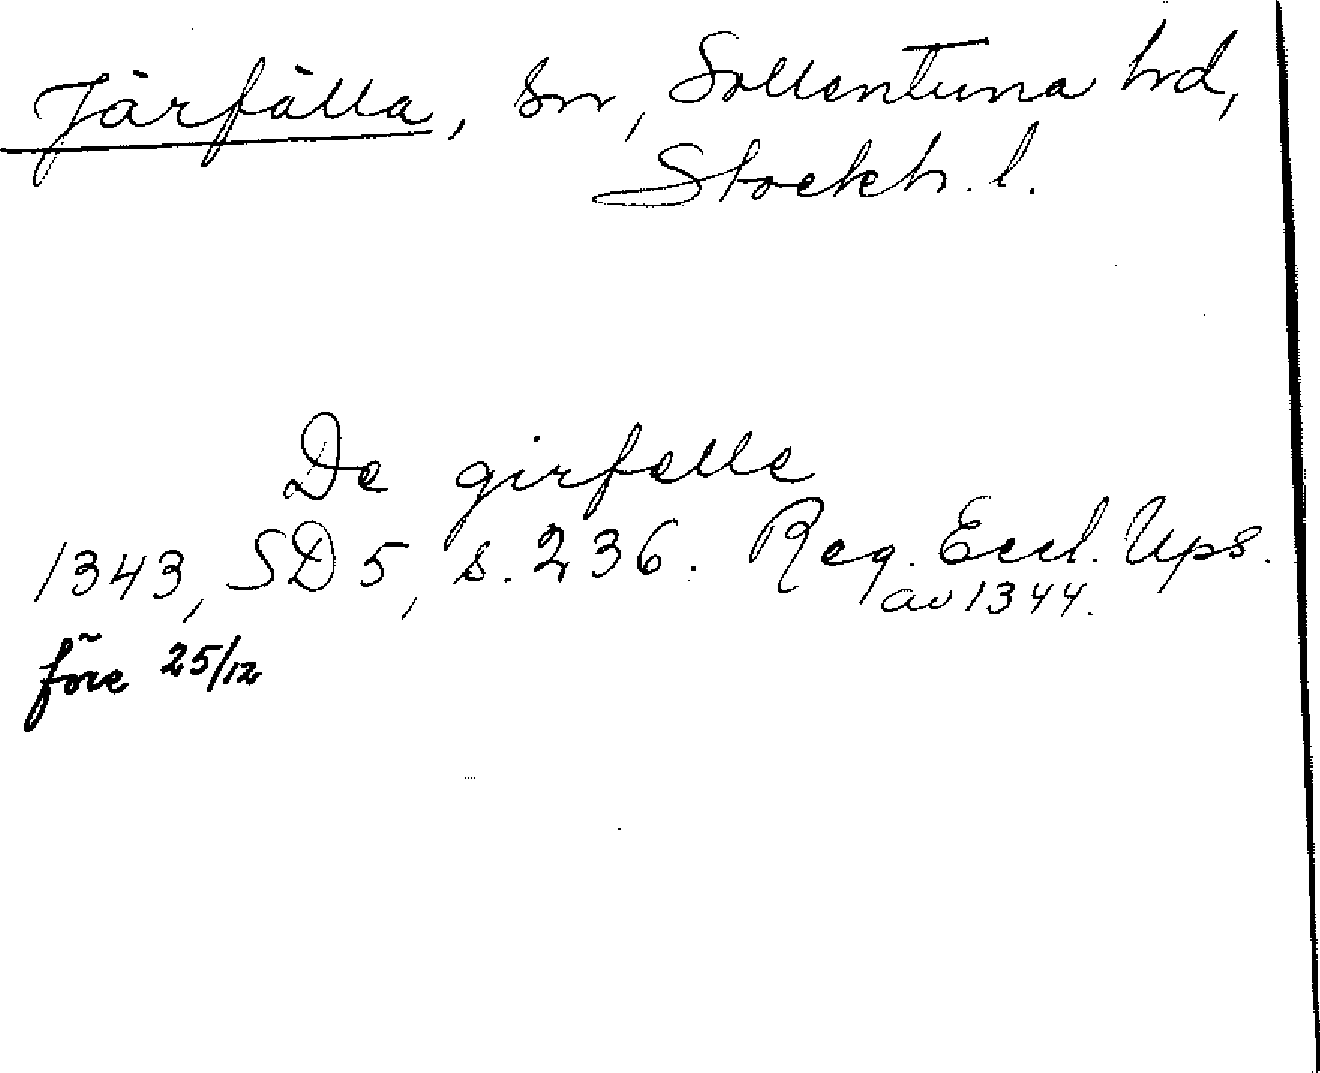 Järfälla, sn, Sollentuna hd,
Stockh. l.
De girfelle
1343, SD 5, s. 236. Reg. Eccl. Ups.
av 1344.
före 25/12